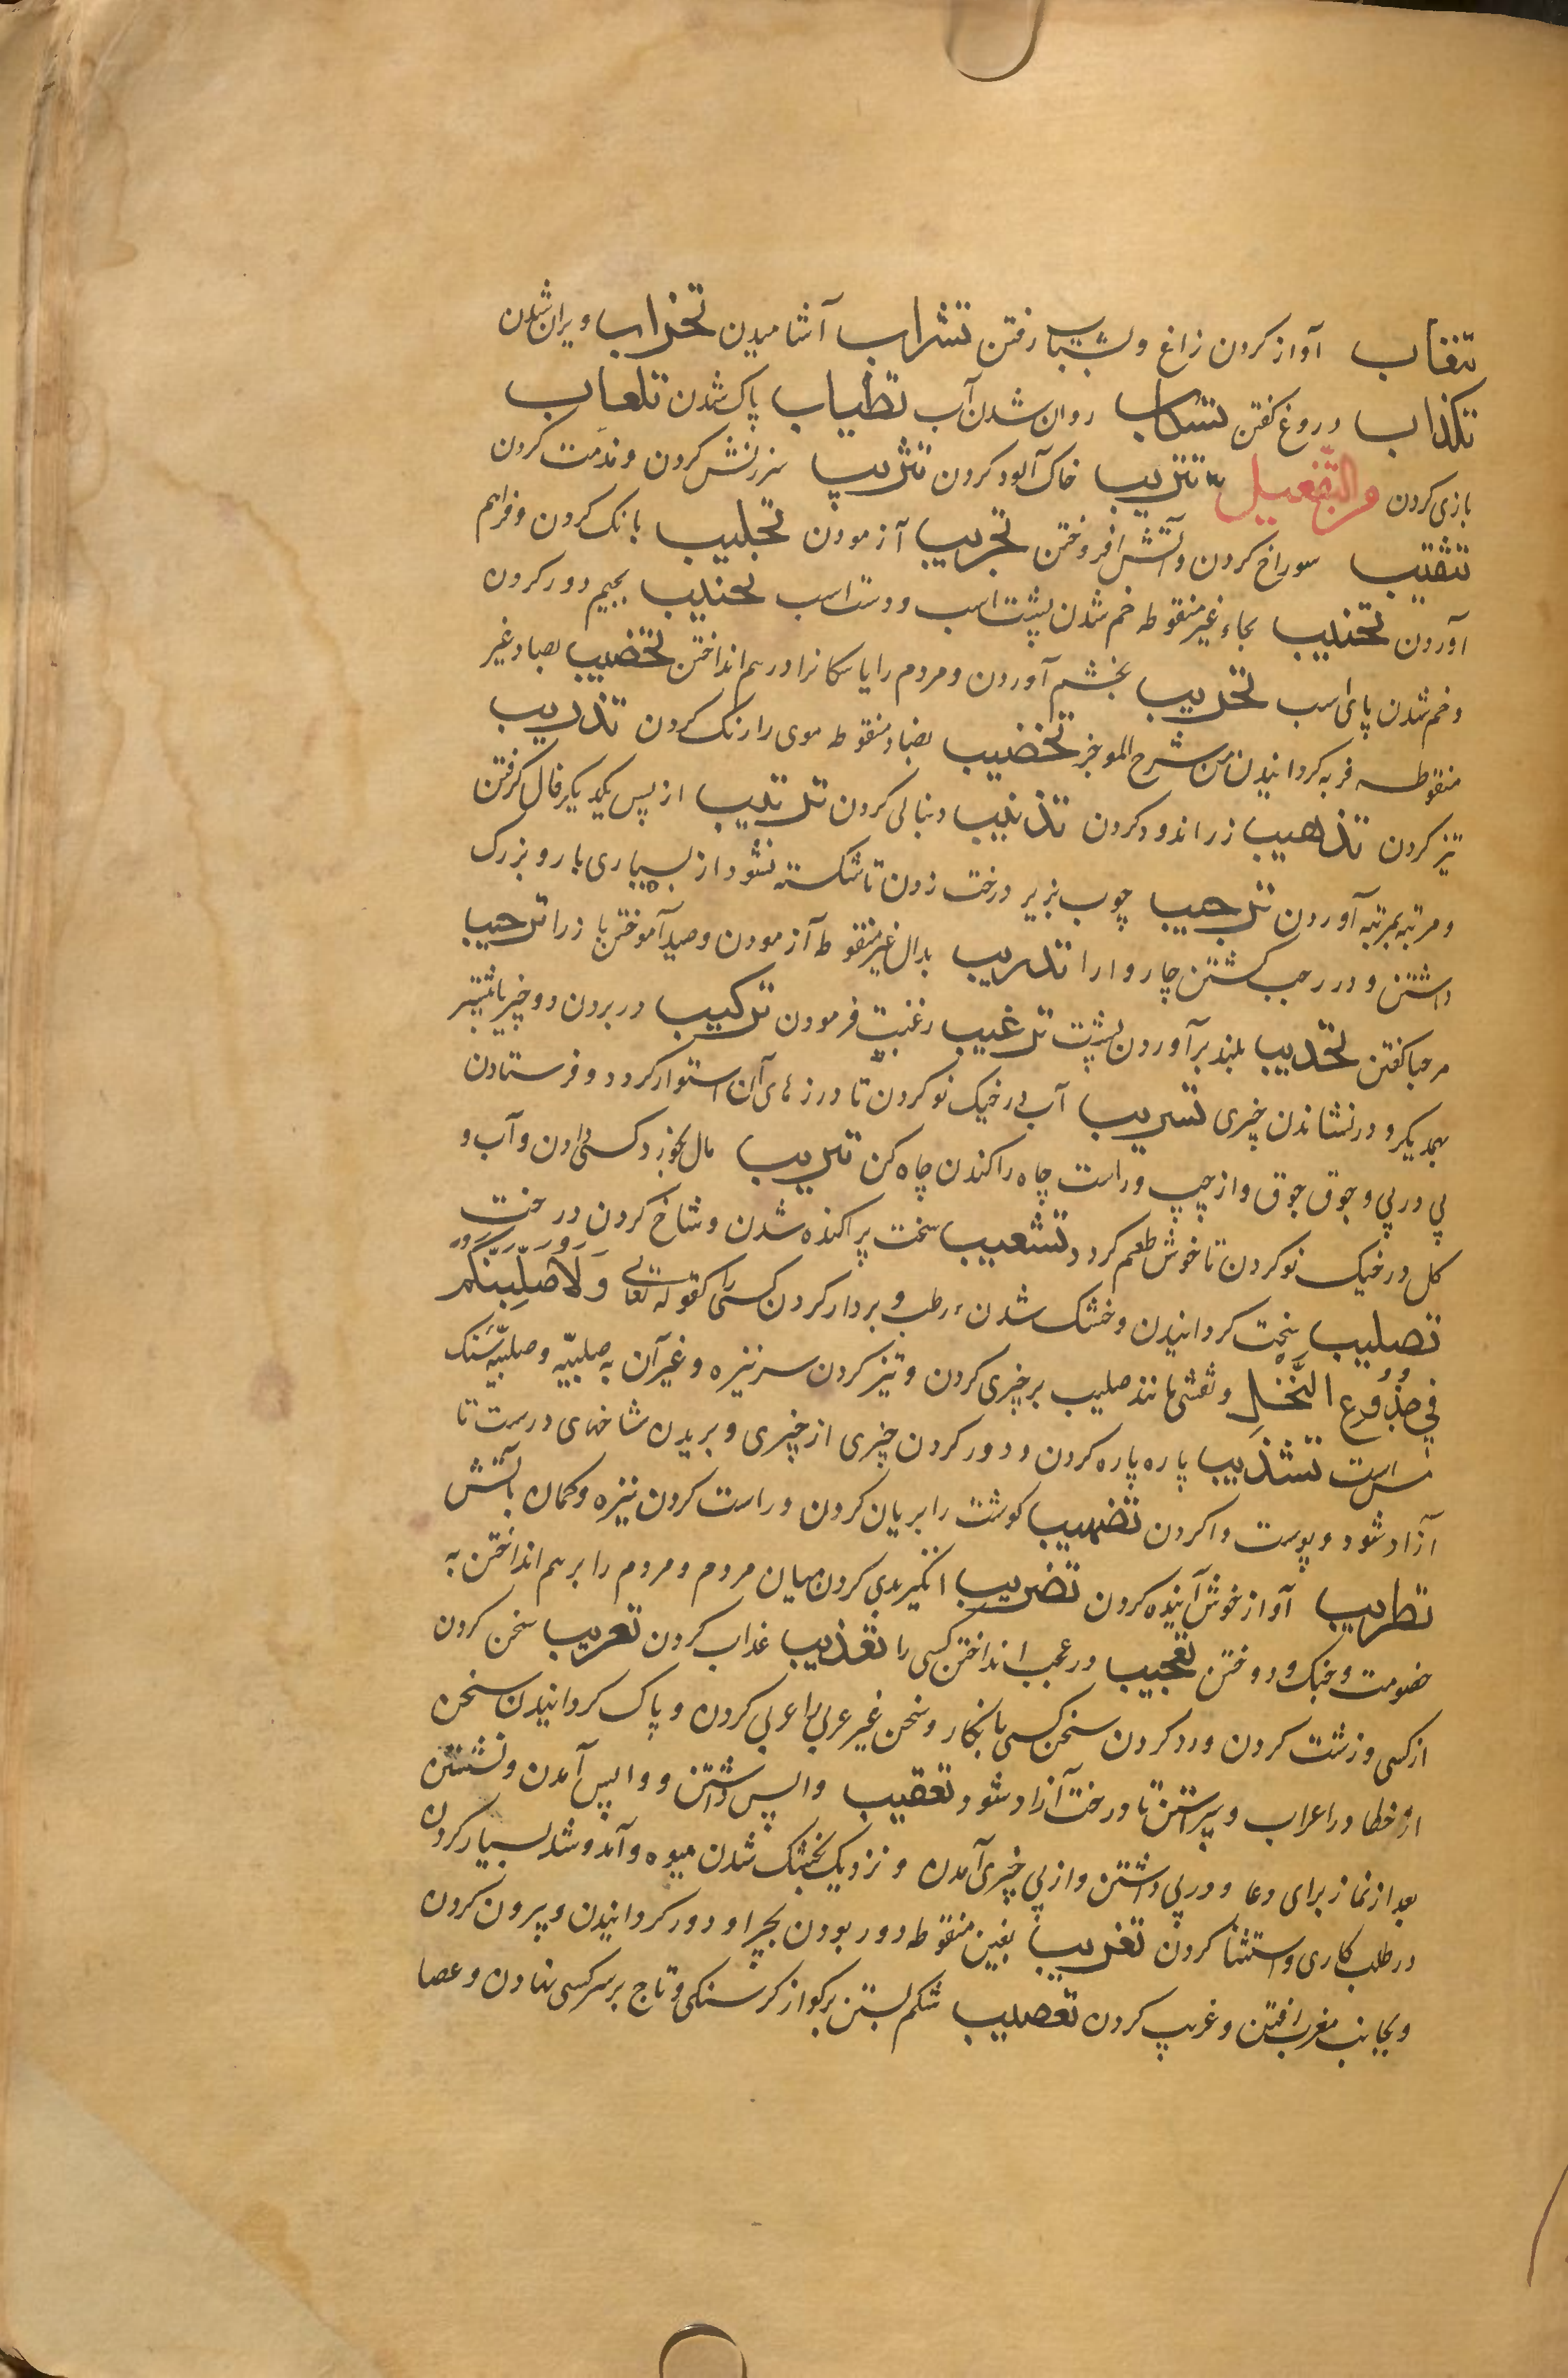 تنغاب آواز کردن زاغ و بشتاب رفتن تشراب آشامیدن تخراب ویران شدن
تکذاب دروغ کفتن تسکاب روان شدن آب تطیاب پاک شدن تلعاب
بازی کردن و التفعیل تتریب خاک آلود کردن تثریب سرزنش کردن و ندمت کردن
تثقیب سوراخ کردن و آتش افروختن تجریب آزمودن تجلیب بانک کردن و فراهم
آوردن تحنیب بحاء غیر منقوطه خم شدن پشت اسب و دست اسب تجنیب بجیم دور کردن
و خم شدن پای اسب تحریب بخشم آوردن و مردم را یا سکانرا در هم انداختن تخصیب بصاد غیر
منقوطه فربه کردانیدن من شرح الموجز تخضیب بضاد منقوطه موی را رنک کردن تذریب
تیز کردن تذهیب زر اندود کردن تذنیب دنبالی کردن ترتیب از پس یکدیکر فال کرفتن
و مرتبه بمرتبه آوردن ترجیب چوب بزیر درخت زدن تا شکسته نشود از بسیاری بار و بزرک
داشتن و در رجب کشتن چاروا را تدریب بدال غیر منقوطه آزمودن و صید آموختن باز را ترحیب
مرحبا کفتن تحدیب بلند برآوردن پشت ترغیب رغبت فرمودن ترکیب در بردن دو چیز
بهمدیکر و در نشاندن چیزی تسریب آب در خیک نو کردن تا درزهای آن استوار کردد و فرستادن
پی در پی و جوق جوق و از چپ و راست چاه را کندن چاه کن مال بخورد کسی دادن و آب و
کل در خیک نو کردن تا خوش طعم کردد تشعیب سخت پراکنده شدن و شاخ کردن درخت
تصلیب سخت کردانیدن و خشک شدن رطب و بردار کردن کسی را کقوله تعالی وَلَاُصَلِّبَنَّكُمْ
فِي جُذُوعِ النَّخْلِ و نقشی مانند صلیب بر چیزی کردن و تیز کردن سر نیزه و غیر آن به صلبیّه و صلبیّه سنک
است تشذیب پاره پاره کردن و دور کردن چیزی از چیزی و بریدن شاخهای درست تا
آزاد شود و پوست وا کردن تضهیب کوشت را بریان کردن و راست کردن نیزه و کمان بآتش
تطریب آواز خوش آینده کردن تضریب انکیز بدی کردن میان مردم و مردم را بر هم انداختن به
خصومت و جنک و دوختن تعجیب در عجب انداختن کسی را تعذیب عذاب کردن تعریب سخن کردن
از کسی و زشت کردن و رد کردن سخن کسی بانکار و سخن غیر عربی را عربی کردن و پاک کردانیدن سخن
از خطا در اعراب و پیراستن تا درخت آزاد شود تعقیب واپس داشتن و واپس آمدن و نشستن
بعد از نماز برای دعا و در پی داشتن و از پی چیزی آمدن و نزدیک بخشک شدن میوه و آمد و شد بسیار کردن
در طلب کاری و استثنا کردن تغریب بغین منقوطه دور بودن بچرا و دور کردانیدن و بیرون کردن
و بجانب مغرب رفتن و غریب کردن تعصیب شکم بستن برکو از کرسنکی و تاج بر سر کسی نهادن و عصا